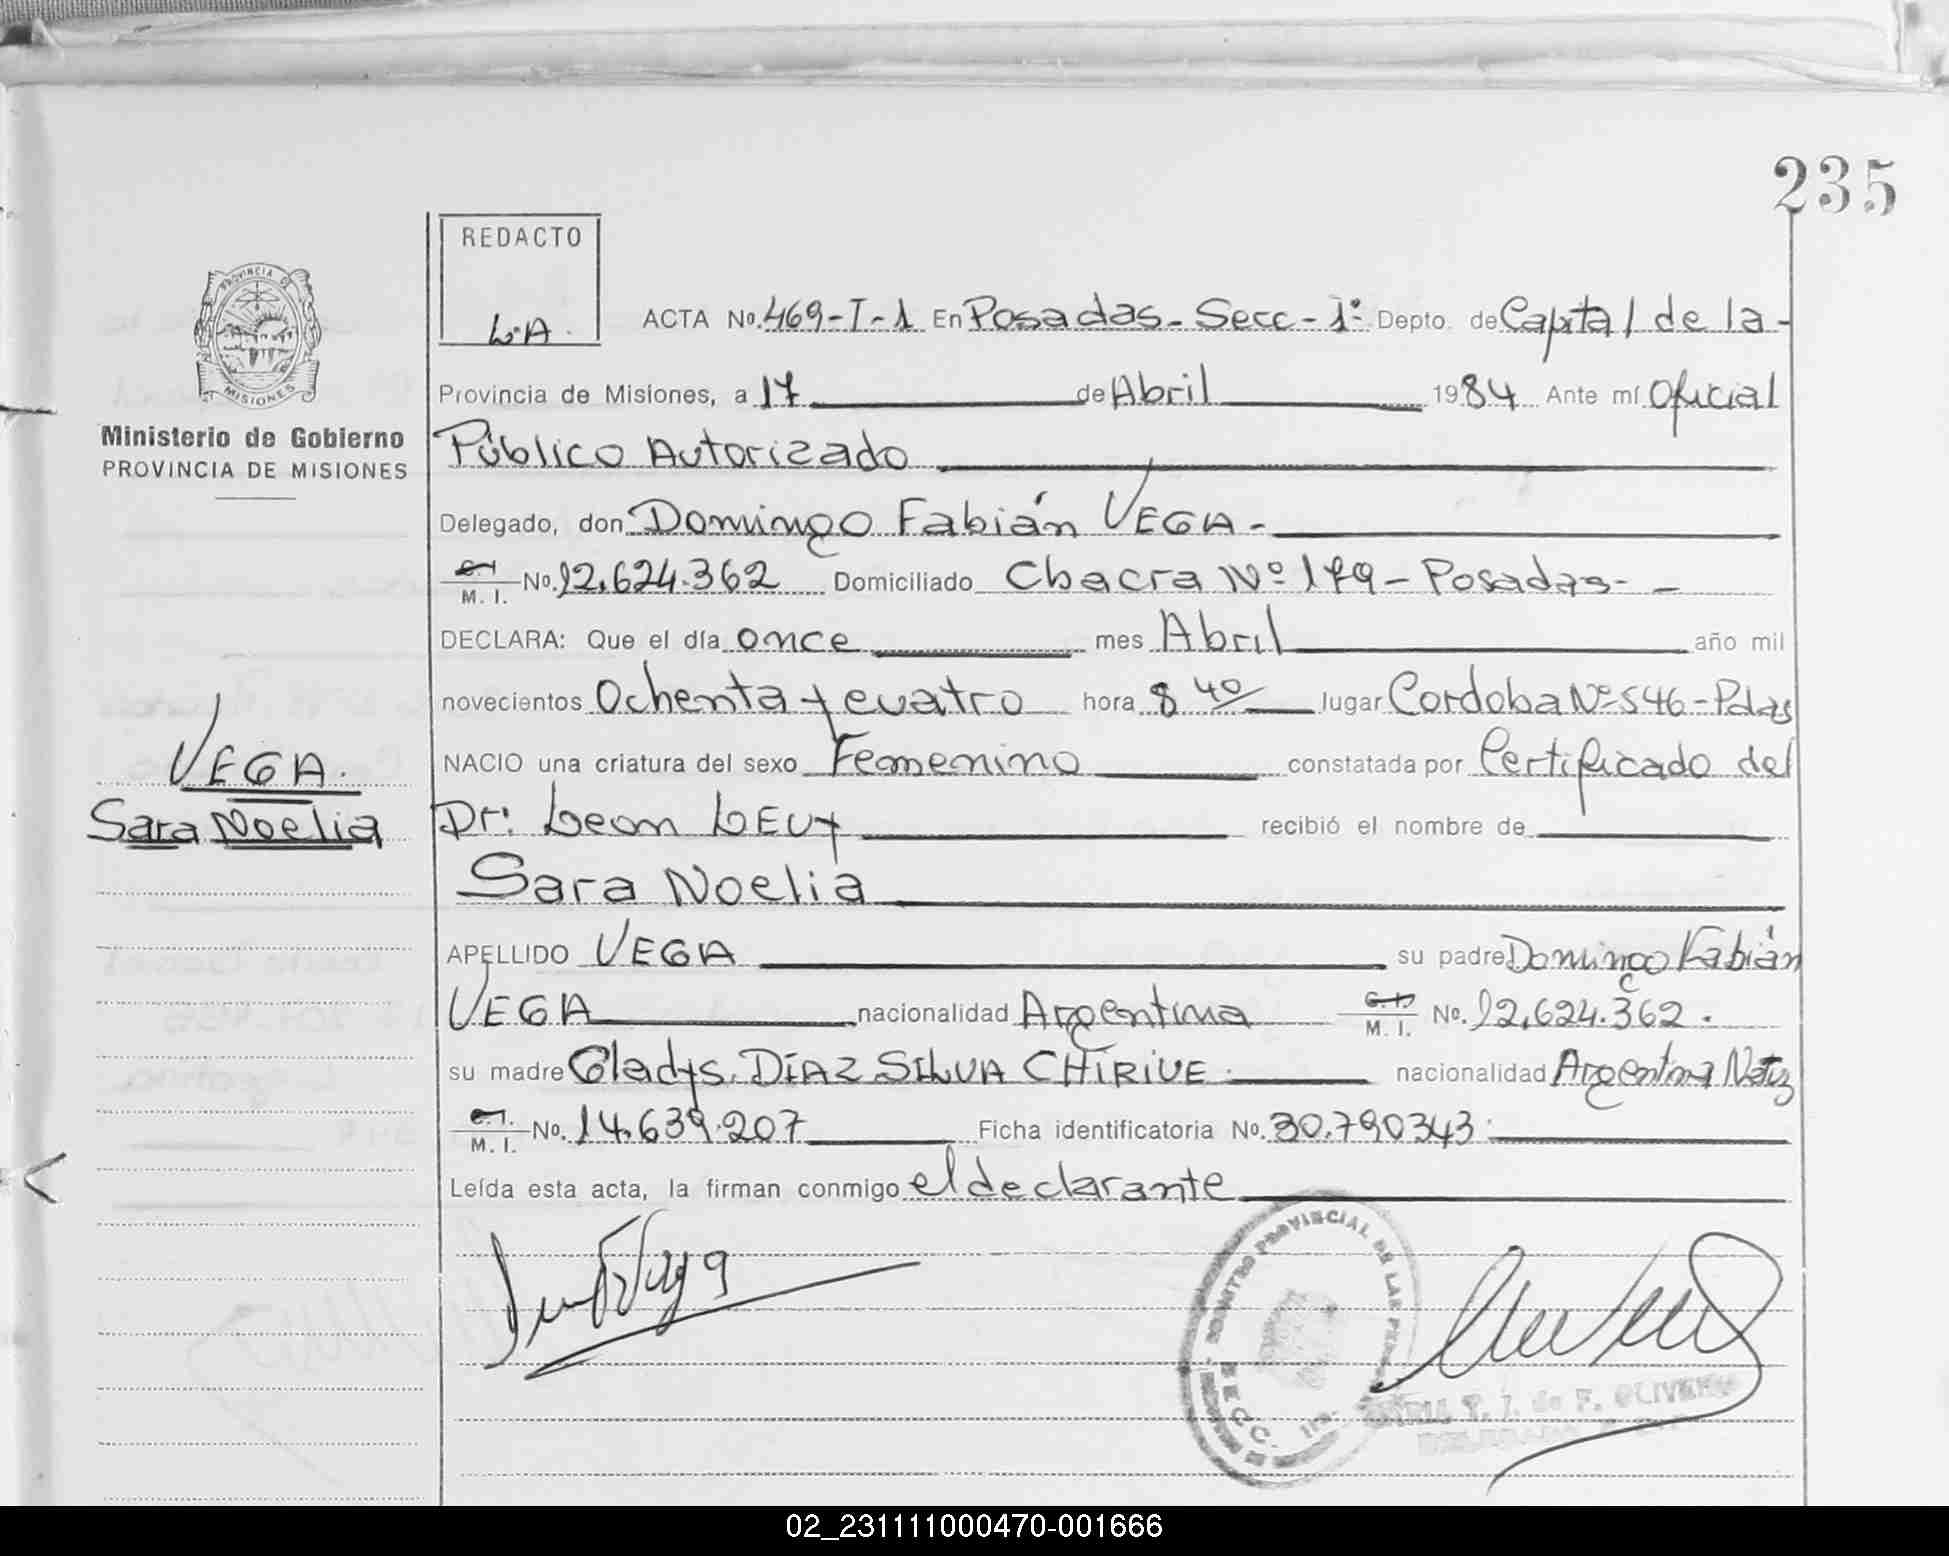 235
REDACTO
L.A.
PROVINCIA DE
MISIONES
ACTA No. 469-I-1 En Posadas- Secc- 1º Depto. de Capital de la-
Provincia de Misiones, a 17 de Abril 1984 Ante mí Oficial
Ministerio de Gobierno
PROVINCIA DE MISIONES
Público Autorizado
Delegado, don Domingo Fabián VEGA-
C.I. M. I. No. 12.624.362 Domiciliado Chacra Nº 179- Posadas- -
DECLARA: Que el día once mes Abril año mil
novecientos Ochenta y cuatro hora 8 40 lugar Cordoba Nº 546-Pdas
NACIO una criatura del sexo Femenino constatada por Certificado del
VEGA.
Sara Noelia
Dr: Leon LEVY recibió el nombre de
Sara Noelia
APELLIDO VEGA su padre Domingo Fabián
VEGA nacionalidad Argentina C.I. M. I. No. 12.624.362.
su madre Gladys. DÍAZ SILVA CHIRIVE. nacionalidad Argentina
C.I. M. I. No. 14.639.207 Ficha identificatoria No. 30.790343.
Leída esta acta, la firman conmigo el declarante
PROVINCIAL DE LAS
SECC. 1ra.
T. I. de F. OLIVEIRA
02_231111000470-001666